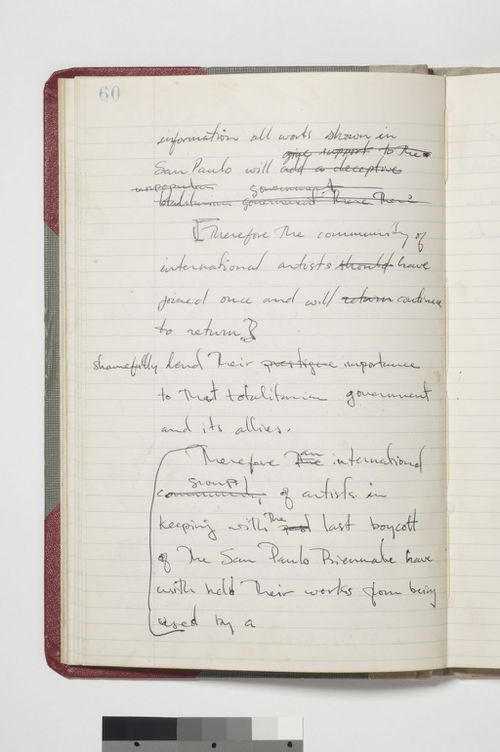 60
information all works shown in
give support to the
San Paulo will add a deceptive
unpopular government
totalitarian government There There
[Therefore the community of
international artists should have
joined once and will return continue
to return]
shamefully lend Their prestigue importance
to That totalitarian government
and its allies.
Therefore The an international
group
community, of artists in
keeping with the last boycott
of The San Paulo Biennale have
with held Their works from being
used by a